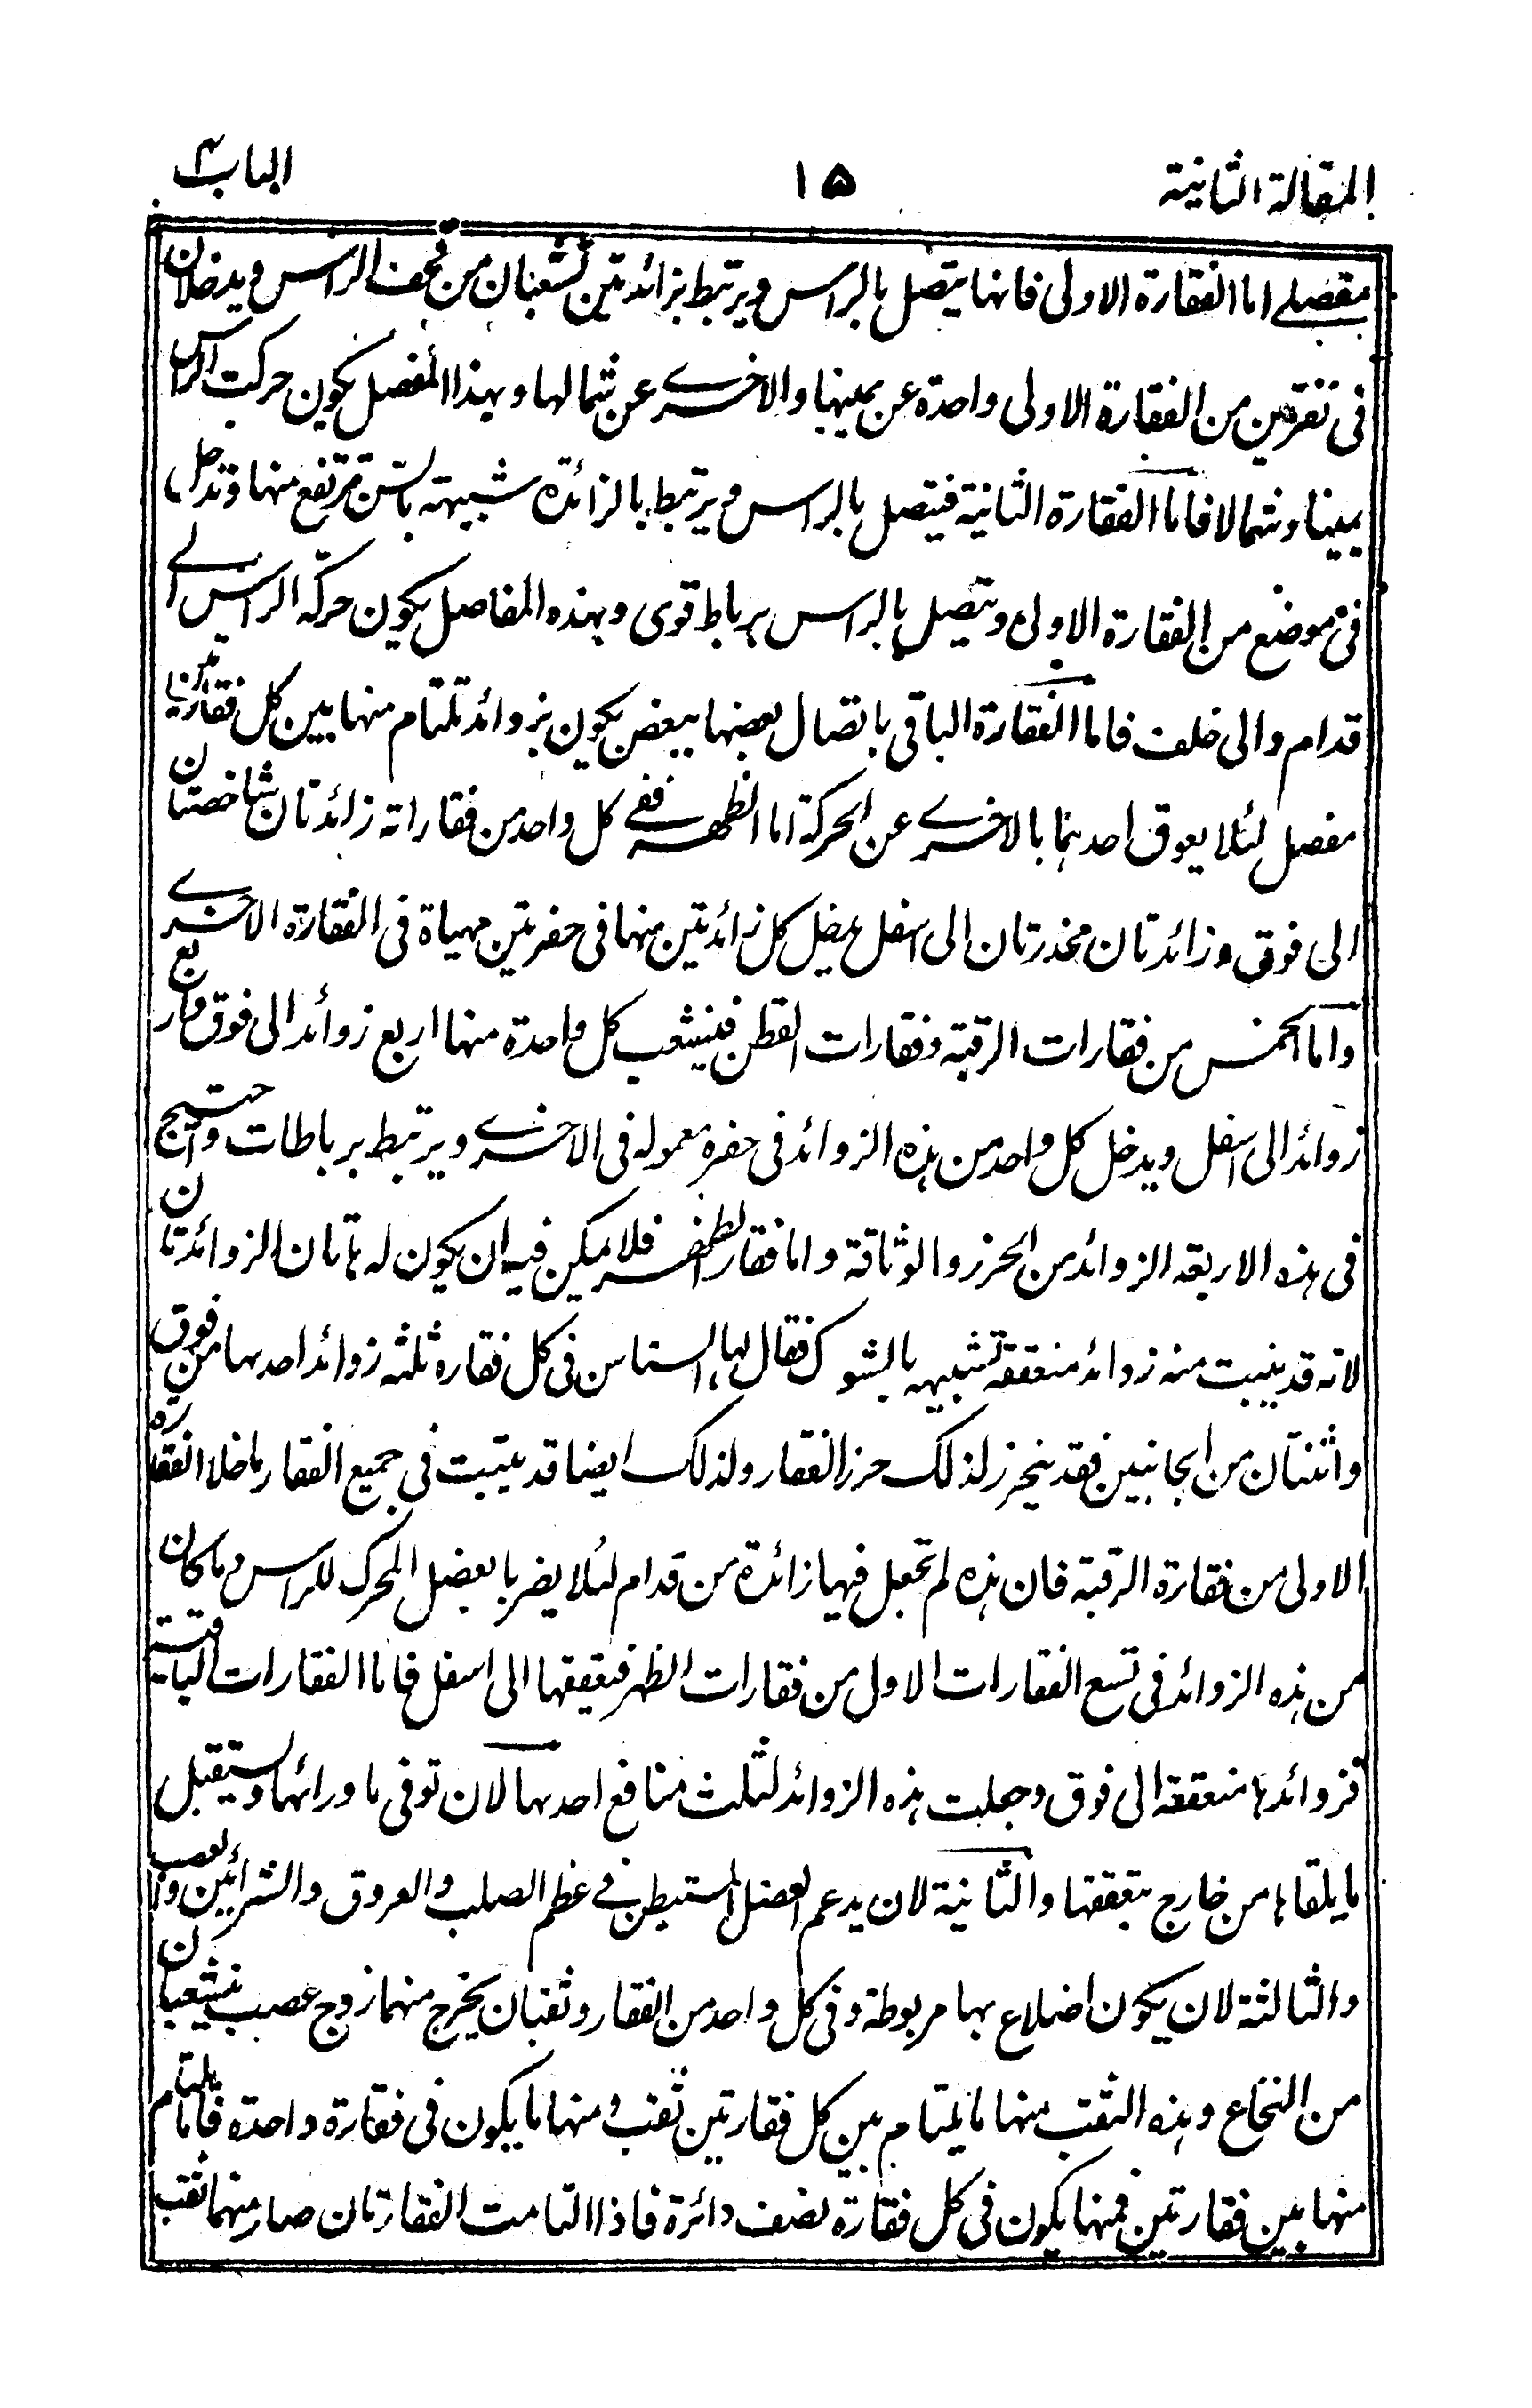 المقالة الثانية ۱۵ الباب ۴
مفصلے اما الفقارة الاولى فانها يتصل بالراس ويرتبط بزائدتين تشعبان من قحف الراس ويدخلان
فى نقرتين من الفقارة الاولى واحدة عن يمينها والاخرے عن شمالها وبهذا المفصل يكون حركت الراس
يمينا وشمالا فاما الفقارة الثانية فيتصل بالراس ويرتبط بالزائدة شبيهته بالسن ترتفع منها وتدخل
فى موضع من الفقارة الاولى ويتصل بالراس برباط قوى وبهذه المفاصل يكون حركة الراس الے
قدام والى خلف فاما الفقارة الباقى باتصال بعضها ببعض يكون بزوائد تلتام منها بين كل فقارتين
مفصل لئلا يعوق احدهما بالاخرے عن الحركة اما الظهر ففے كل واحد من فقاراته زائدتان شاخصتان
الى فوق وزائدتان منحدرتان الى اسفل يدخل كل زائدتين منها فى حفرتين مهياة فى الفقارة الاخرے
واما الخمس من فقارات الرقبة وفقارات القطن فينشعب كل واحدة منها اربع زوائد الى فوق واربع
زوائد الى اسفل ويدخل كل واحد من هذه الزوائد فى حفرة معموله فى الاخرے ويرتبط برباطات واحتيج
فى هذه الاربعة الزوائد من الحرز والوثاقة واما فقار الظهر فلا يمكن فيه ان يكون له هاتان الزوائدتان
لانه قد ينبت منه زوائد منعقفة تشبيهه بالشوك فقال لها السناسن فى كل فقاره ثلثه زوائد احدها من فوق
واثنتان من الجانبين فقد ينحرز لذلك حرز الفقار ولذلك ايضا قد ينبت فى جميع الفقار ما خلا الفقارة
الاولى من فقارة الرقبة فان هذه لم تجعل فيها زائدة من قدام لئلا يضر بالعضل المحرك للراس وما كان
من هذه الزوائد فى تسع الفقارات الاول من فقارات الظهر فتعقفها الى اسفل فاما الفقارات الباقية
فزوائدها منعقفة الى فوق وجعلت هذه الزوائد لثلث منافع احدها لان توقى ما ورائها ويستقبل
ما يلقاها من خارج بتعقفها والثانية لان يدعم العضل المستبطن فے عظم الصلب والعروق والشرائين والعصب
والثالثة لان يكون اضلاع بها مربوطة وفى كل واحد من الفقار وثقبان يخرج منهما زوج عصب ينشعبان
من النخاع وهذه الثقب منها ما يلتام بين كل فقارتين ثقب ومنها ما يكون فى فقارة واحدة فاما ما يلتام
منها بين فقارتين فمنها يكون فى كل فقارة نصف دائرة فاذا التامت الفقارتان صار منهما ثقب